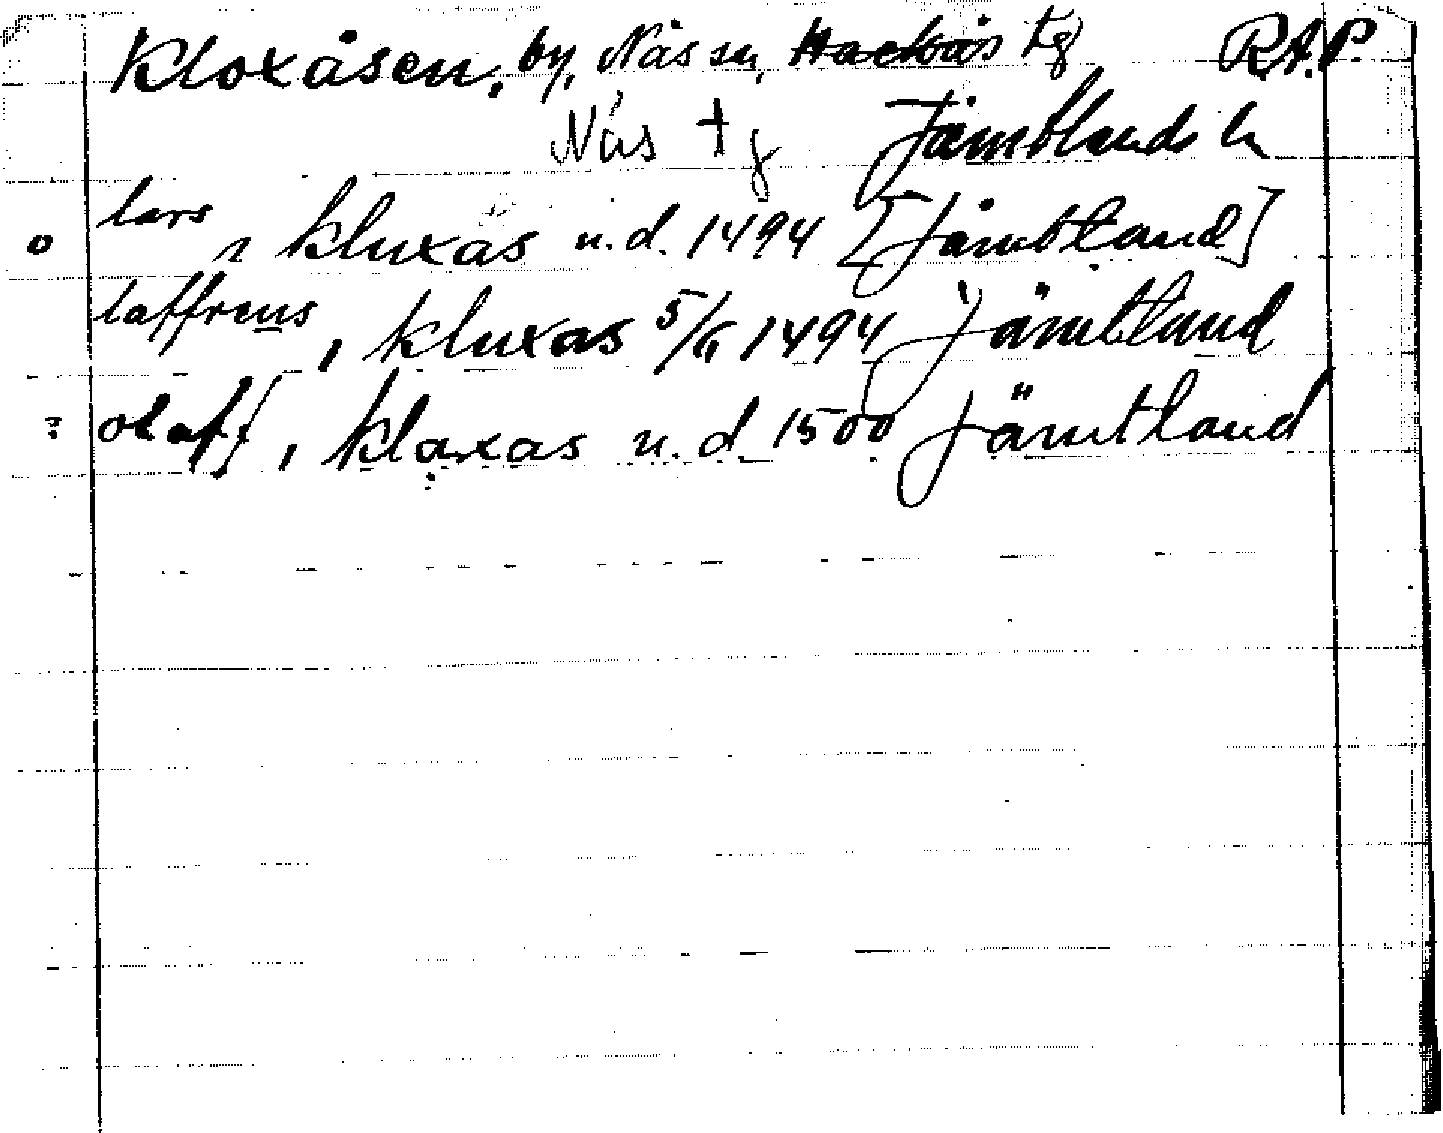 Kloxåsen, by, Näs sn, Hackås tg R.A.P.
Näs tg Jämtlands ln
lars , kluxas u.d. 1494 [Jämtland]
laffrens , kluxas 5/6 1494 Jämtland
olaff , klaxas u.d. 1500 Jämtland